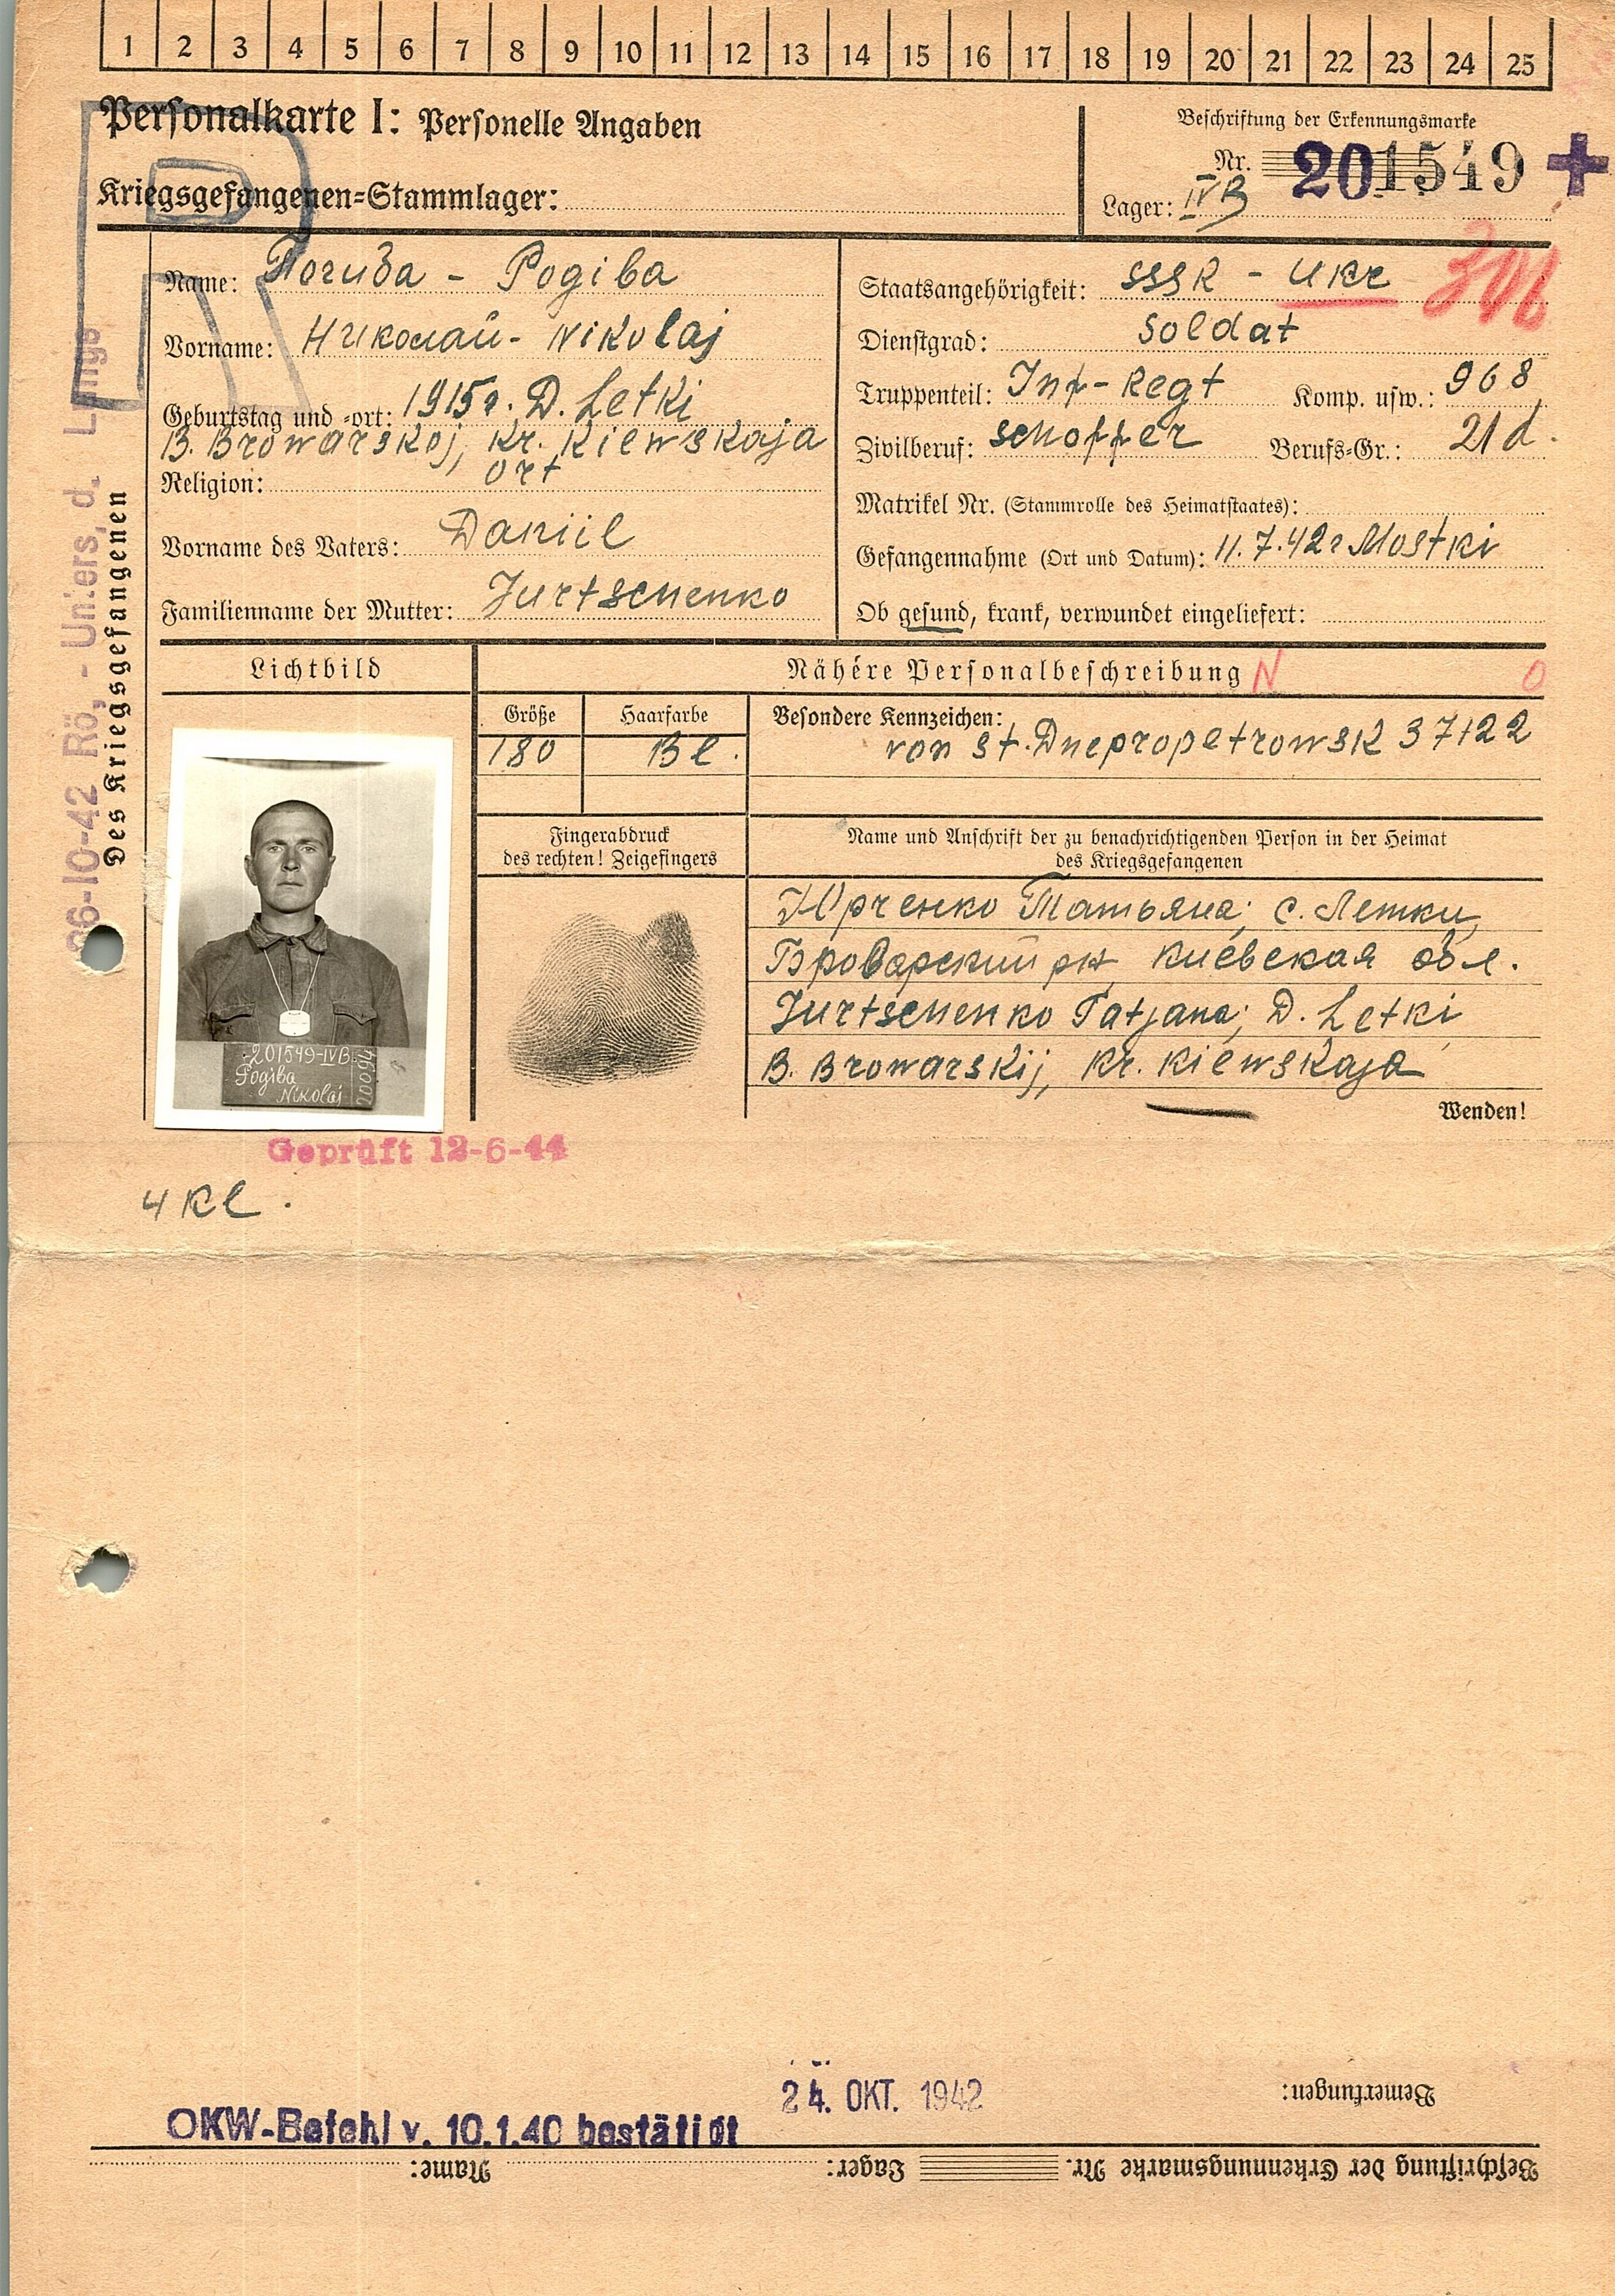 1 2 3 4 5 6 7 8 9 10 11 12 13 14 15 16 17 18 19 20 21 22 23 24 25
Personalkarte I: Personelle Angaben
Kriegsgefangenen=Stammlager:
Beschriftung der Erkennungsmarke
Nr. 201549 +
Lager: IVB
Name: Погиба - Pogiba
Vorname: Николай - Nikolaj
Geburtstag und -ort: 1915г. D. Letki
B. Browarskoj, Kr. Kiewskaja
ort
Religion:
Vorname des Vaters: Daniil
Familienname der Mutter: Jurtschenko
Staatsangehörigkeit: SSSR - Ukr
Dienstgrad: Soldat
Truppenteil: Inf-Regt Komp. usw.: 968
Zivilberuf: schoffer Berufs=Gr.: 21d.
Matrikel Nr. (Stammrolle des Heimatstaates):
Gefangennahme (Ort und Datum): 11.7.42г Mostki
Ob gesund, krank, verwundet eingeliefert:
Des Kriegsgefangenen
26-10-42 Rö, - Unters, d.
Lichtbild
Nähere Personalbeschreibung N O
Größe
180
Haarfarbe
Bl.
Besondere Kennzeichen:
von St. Dnepropetrowsk 37122
Fingerabdruck
des rechten! Zeigefingers
Name und Anschrift der zu benachrichtigenden Person in der Heimat
des Kriegsgefangenen
Юрченко Татьяна; с. Летки,
Броварский рн Киевская обл.
Jurtschenko Tatjana; D. Letki
B. Browarskij, Kr. Kiewskaja
Wenden!
201549-IVB
Pogiba
Nikolaj
20094
Geprüft 12-6-44
4 Kl.
Bemerkungen:
24. OKT. 1942
OKW-Befehl v. 10.1.40 bestätigt
Beschriftung der Erkennungsmarke Nr. Lager: Name: